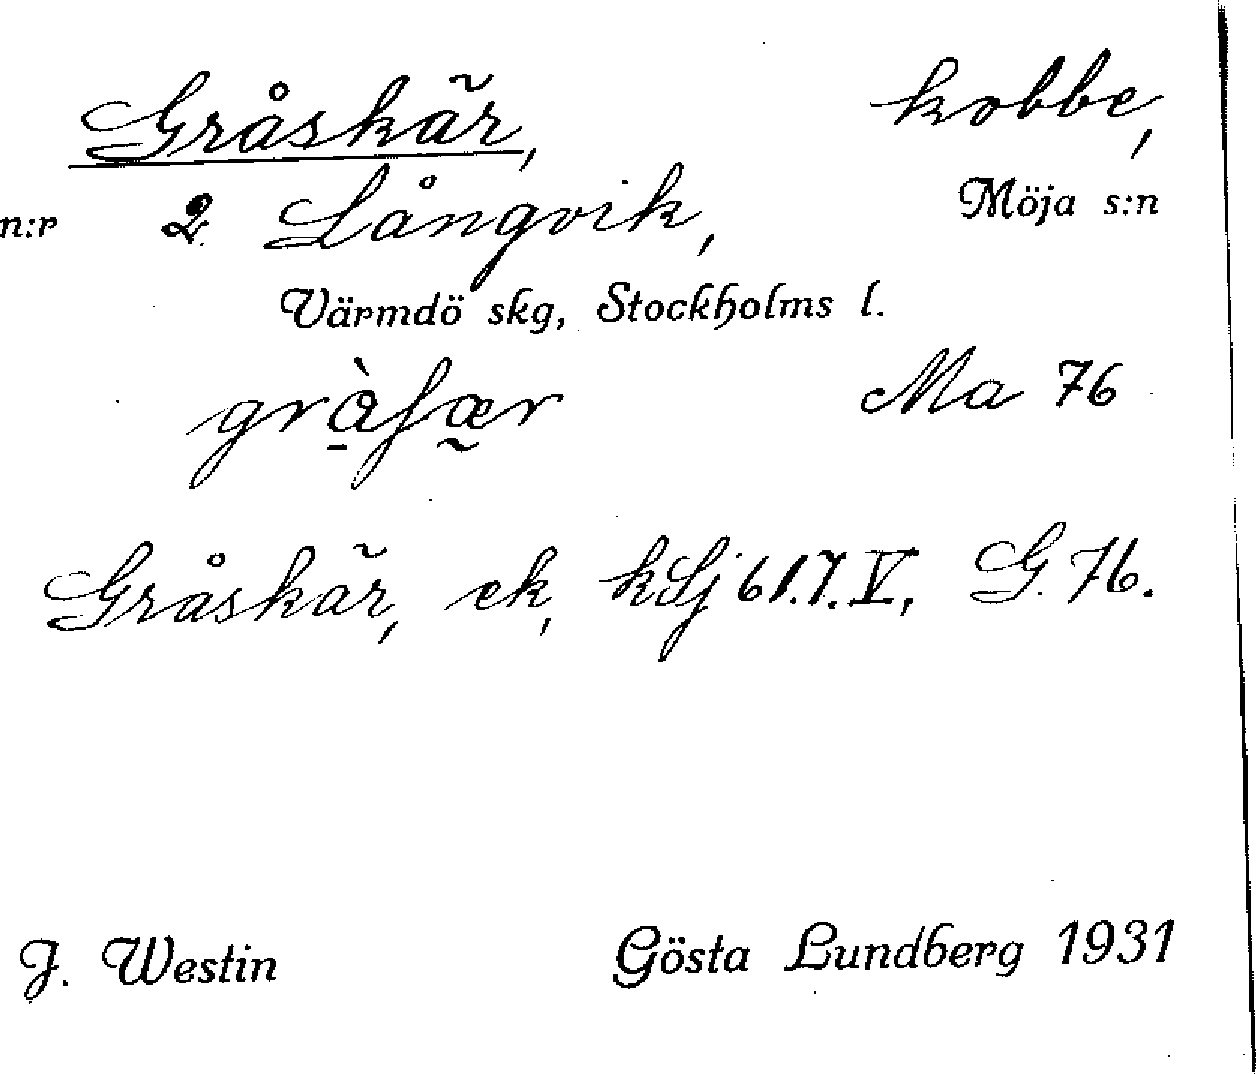 Gråskär, kobbe,
n:r 2 Långvik, Möja s:n
Värmdö skg, Stockholms l.
grà̱ʃæ̰r Ma 76
Gråskär, ek, kSj 61.7.V, G.76.
J. Westin Gösta Lundberg 1931